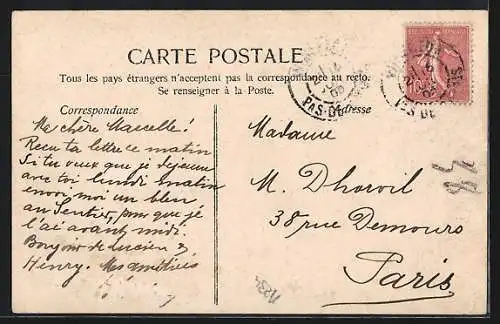 CARTE POSTALE
Tous les pays étrangers n'acceptent pas la correspondance au recto.
Se renseigner à la Poste.
Correspondance
Adresse
Ma chère Marcelle!
Reçu ta lettre ce matin
Si tu veux que je déjeune
avec toi lundi matin
envoi moi un bleu
au Sentier, pour que je
l'ai avant midi.
Bonjour de Lucien &
Henry. Mes amitiés
Madame
M. Dhorvil
38 rue Demours
Paris
PAS-DE
10
84
1234